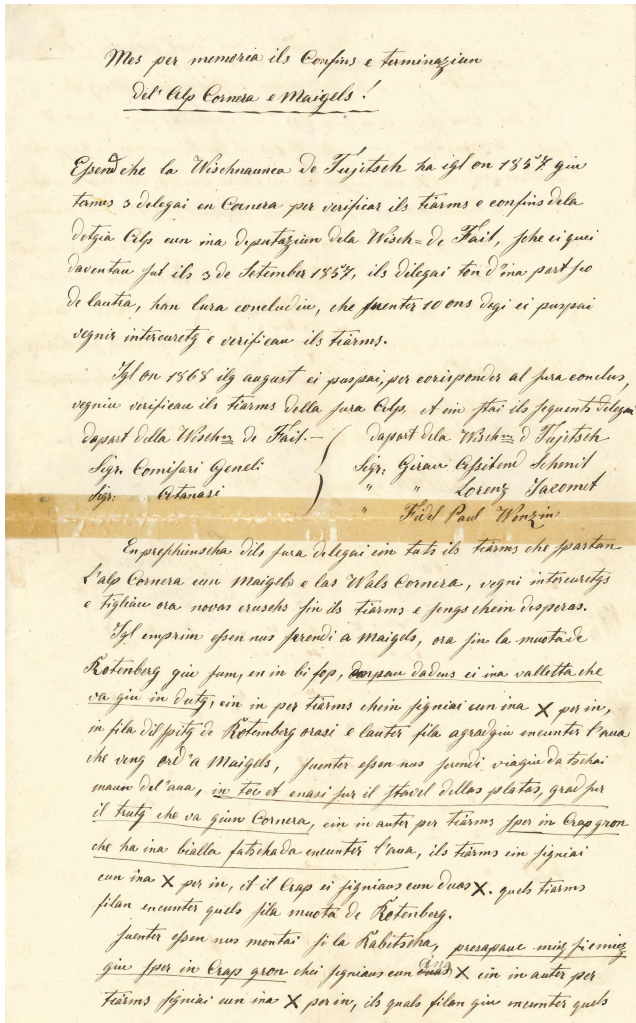 Mes per memoria ils Confins e terminaziun
del' Alp Cornera e Maigels!
Essend che la Wischnaunca de Tujetsch ha igl on 1857 giu
termes 3 delegai en Cornera per verificar ils tiarms e confins dela
detgia Alp cun ina deputaziun dela Wisch= de Fait, sche ei quei
daventau sut ils 3 de Setember 1857, ils dilegai ton d'ina part sco
de lautra, han lura concludiu, che suenter 10 ons degi ei puspai
vegnir intercuretg e verificau ils tiarms.
Igl on 1868 ilg august ei puspai, per corisponder al sura conclus,
vegniu verificau ils tiarms della sura Alp, et ein stai ils sequents delegai
dapart della Wischn de Fait.— dapart dela Wischn d Tujetsch
Sigr. Comisari Geneli Sigr: Girau Assitend Schmit
Sigr: Atanasi " " Lorenz Jacomet
" Fidel Paul Wenzin
En preschienscha dils sura delegai ein tuts ils tiarms che spartan
L'alp Cornera cun Maigels e las Wals Cornera, vegni intercuretgs
e tigliau ora novas cruschs sin ils tiarms e sengs chein desperas.
Igl emprim essen nus serendi a Maigels, ora sin la muota de
Rotenberg giu sum, en in bi fop, dapau dadens ei ina valletta che
va giu in dutg, ein in per tiarms chein signiai cun ina X per in,
in fila dil spitg de Rotemberg orasi e lauter fila agradgiu encunter l'aua
che veng ord' a Maigels, suenter essen nus serendi viagiu da tschai
maun del'aua, in toc et enasi sur il stavel dellas platas, grad sur
il trutg che va giun Cornera, ein in auter per tiarms sper in Crap gron
che ha ina bialla fatschada encunter l'aua, ils tiarms ein signiai
cun ina X per in, et il Crap ei signiaus cun duas X. quels tiarms
filan encunter quels sila muota de Rotenberg.
suenter essen nus montai si la Rabitscha, presapauc miez siemiez
giu sper in Crap gron chei signiaus cun ina X ein in auter per
tiarms signiai cun ina X per in, ils quals filan giu encunter quels